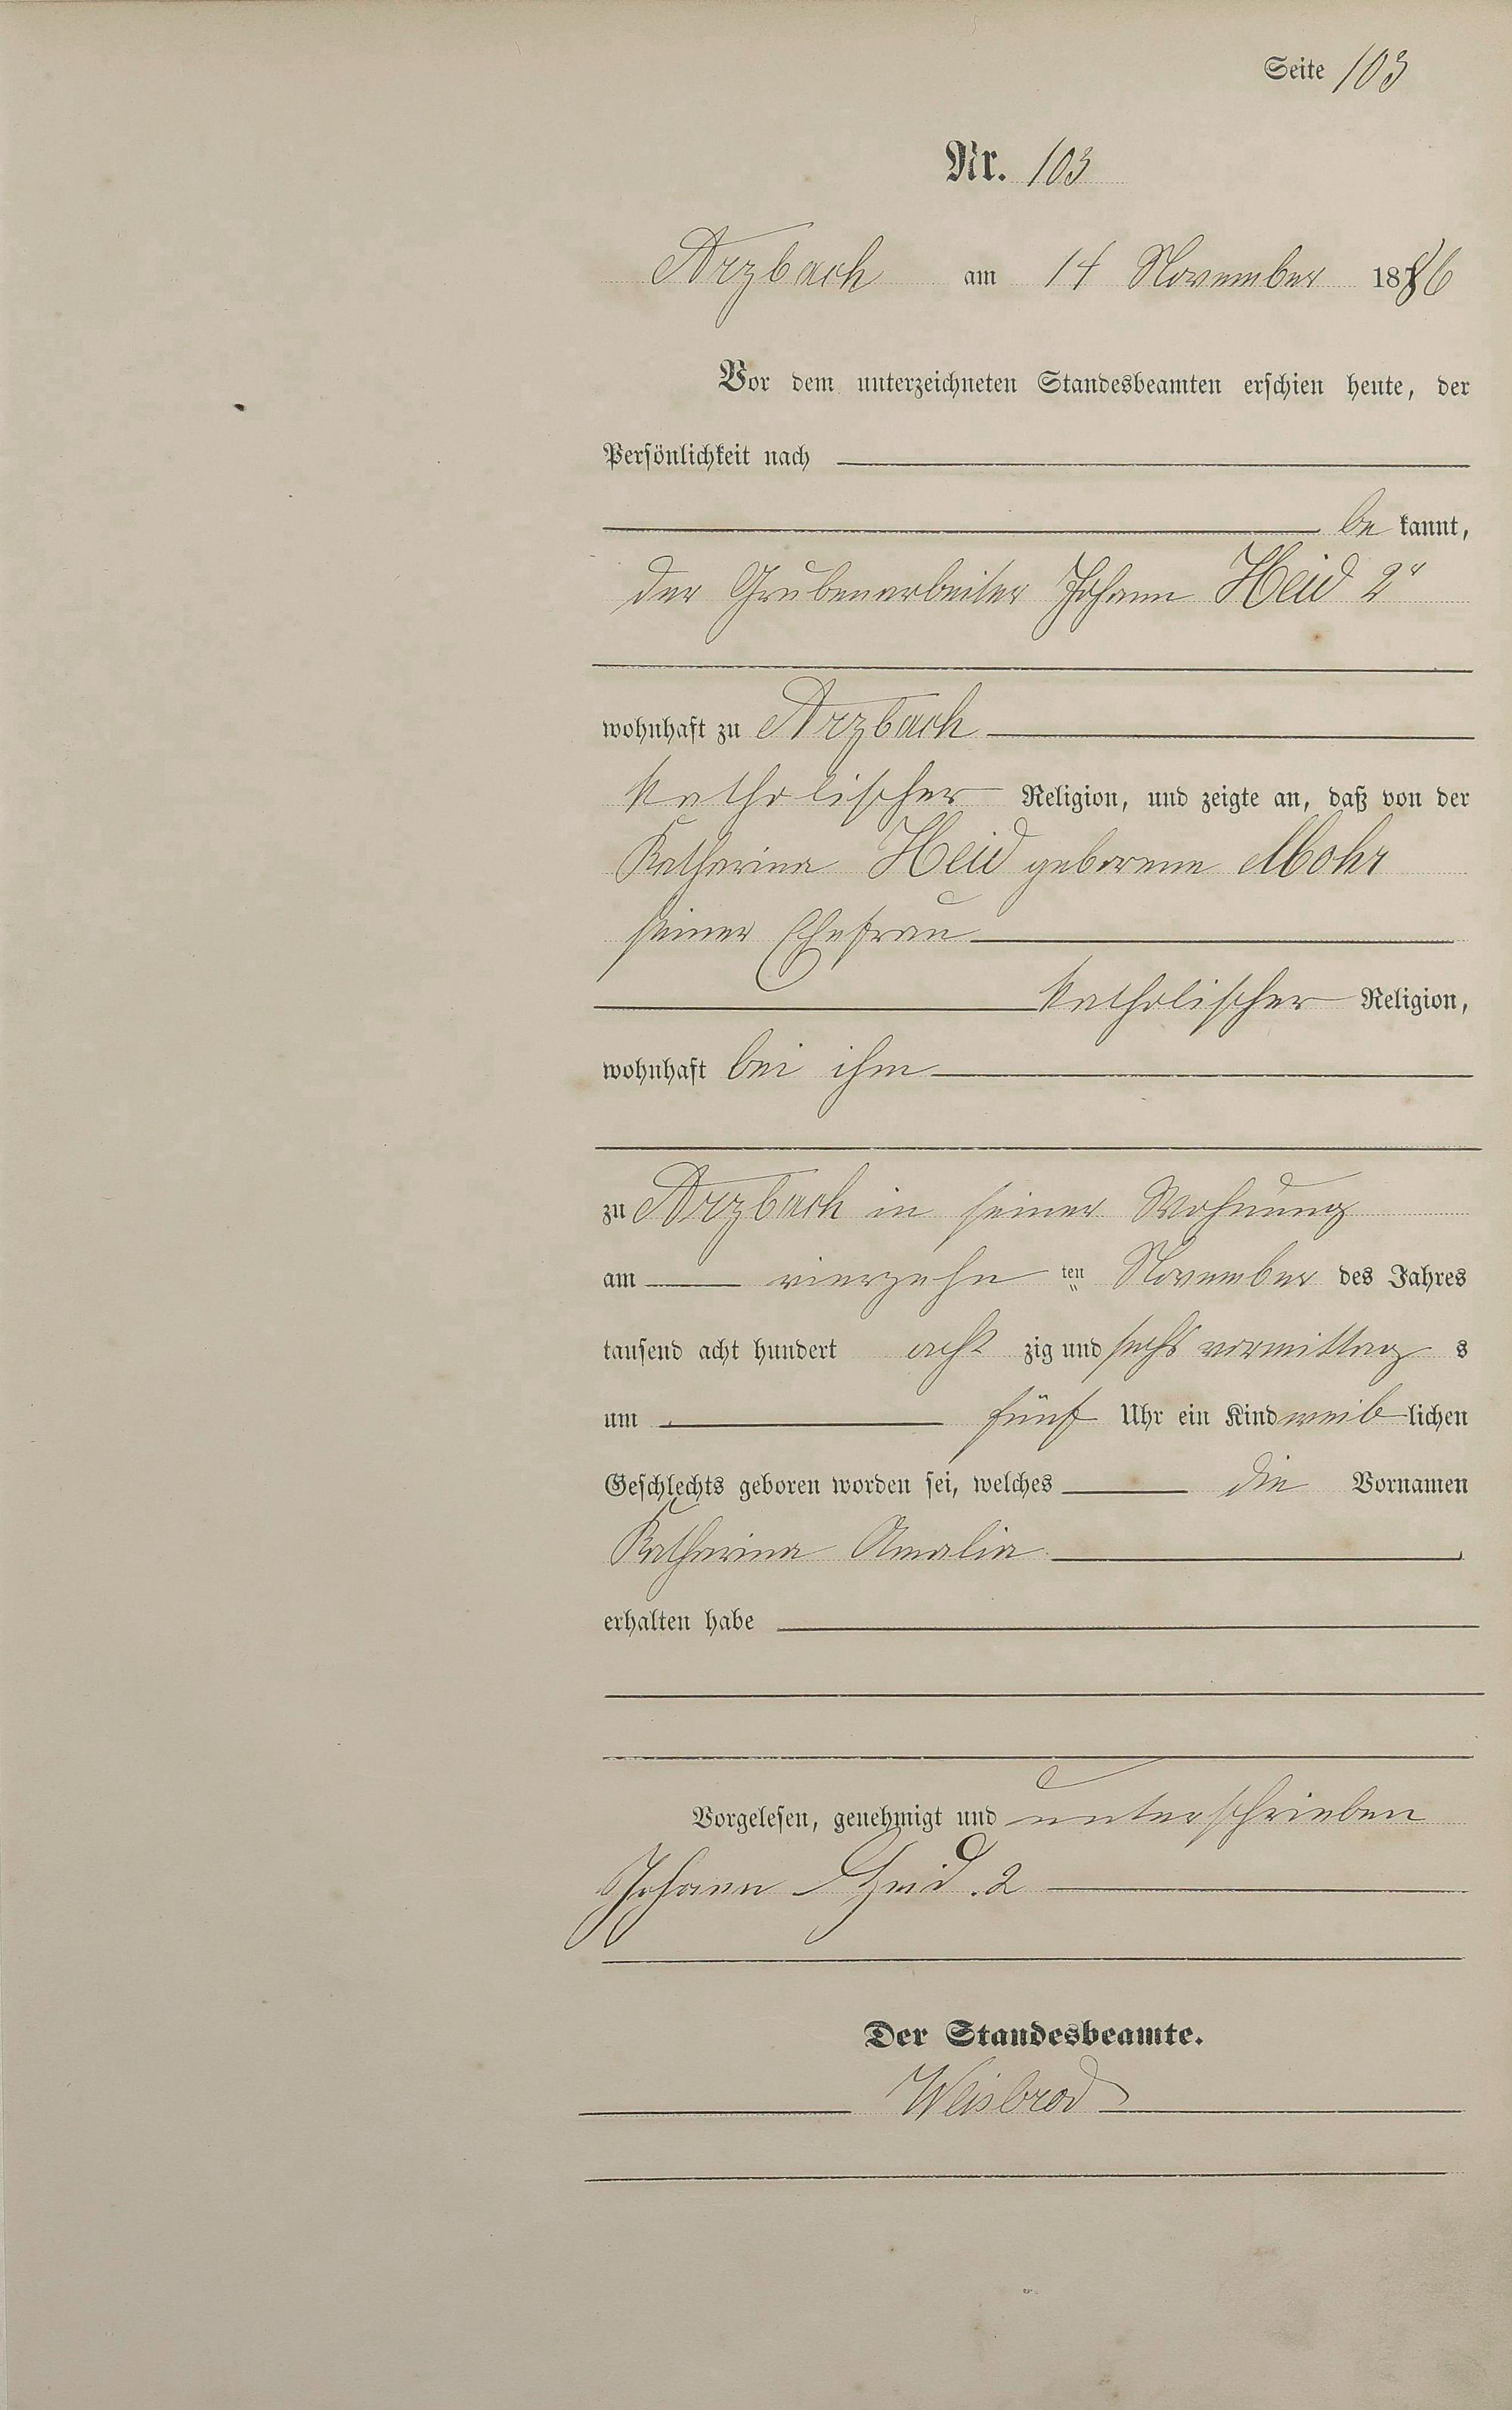 Seite 103
Nr. 103
Arzbach am 14 November 1886
Vor dem unterzeichneten Standesbeamten erschien heute, der
Persönlichkeit nach
be kannt,
der Grubenarbeiter Johann Heid 2r
wohnhaft zu Arzbach
katholischer Religion, und zeigte an, daß von der
Katharina Heid geborene Mohr
seiner Ehefrau
katholischer Religion,
wohnhaft bei ihm
zu Arzbach in seiner Wohnung
am vierzehn ten November des Jahres
tausend acht hundert acht zig und sechs vormittag s
um fünf Uhr ein Kind weib lichen
Geschlechts geboren worden sei, welches die Vornamen
Katharina Amalia
erhalten habe
Vorgelesen, genehmigt und unterschrieben
Johann Heid. 2
Der Standesbeamte.
Weisbrod